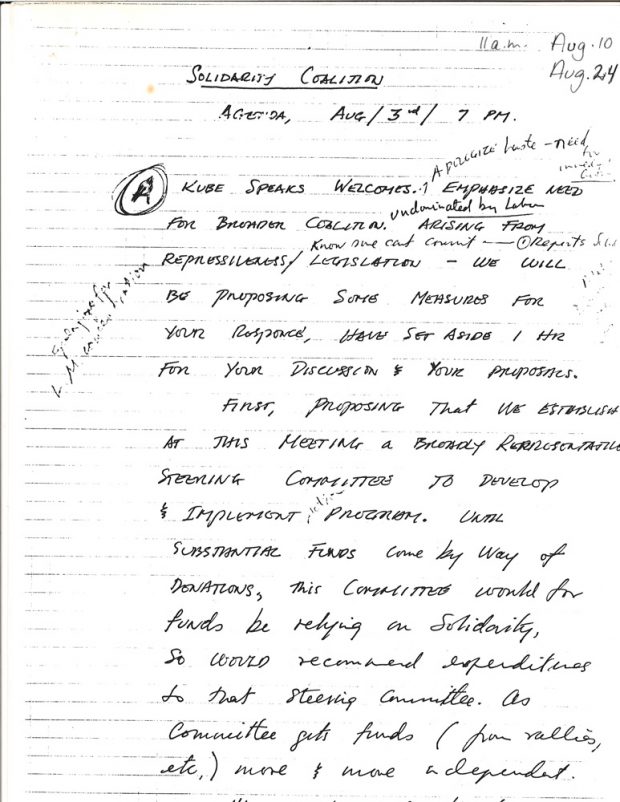 11 a.m. Aug. 10
Aug. 24
SOLIDARITY COALITION
AGENDA, AUG/3rd/ 7 PM.
APOLOGIZE haste - need
for
(A) KUBE SPEAKS WELCOMES. EMPHASIZE NEED
undominated by Labor
FOR BROADER COALITION. ARISING FROM
Know one can't commit — ① Reports
REPRESSIVENESS/LEGISLATION - WE WILL
BE PROPOSING SOME MEASURES FOR
YOUR RESPONCE, HAVE SET ASIDE 1 HR
FOR YOUR DISCUSSION & YOUR PROPOSALS.
FIRST, PROPOSING That WE ESTABLISH
AT THIS MEETING A BROADLY REPRESENTATIVE
STEERING COMMITTEE TO DEVELOP
& IMPLEMENT PROGRAM. UNTIL
SUBSTANTIAL FUNDS come by way of
DONATIONS, this COMMITTEE would for
funds be relying on Solidarity,
So WOULD recommend expenditures
to that Steering Committee. As
Committee gets funds (from rallies,
etc,) more & more independent.